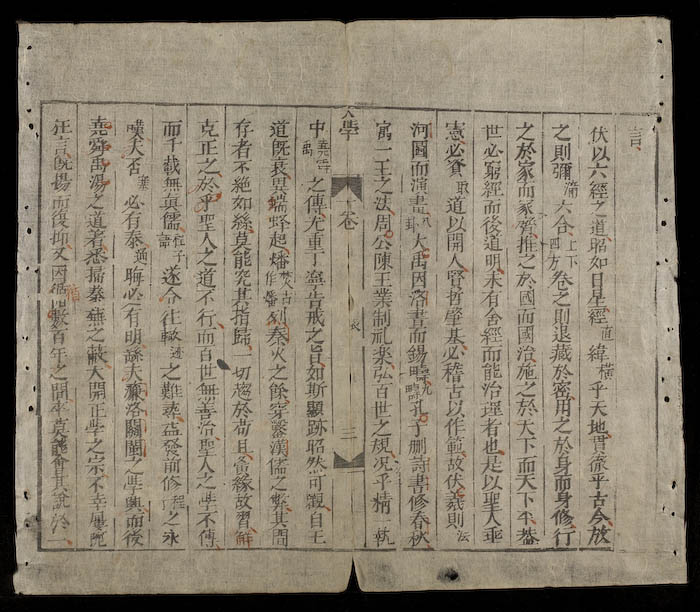 言
伏以六經之道昭如日星經直緯橫乎天地貫徹乎古今放
之則彌滿六合上下四方卷之則退藏於密用之於身而身修行
之於家而家齊推之於國而國治施之於天下而天下平盖
世必窮經而後道明未有舍經而能治理者也是以聖人垂
憲必資取道以開人賢哲肇基必稽古以作範故伏羲則法
河圖而演畫八卦大禹因洛書而錫疇九疇孔子刪詩書修春秋
寓一王之法周公陳王業制礼楽弘百世之規况乎精一執
大學 卷 三
中堯舜禹之傳尤重丁寧告戒之旨如斯顯跡昭然可觀自王
道既衰異端蜂起燔焚古列秦火之餘穿鑿漢儒之弊其間
存者不絶如絲莫能究其指歸一切趍於苟且夤緣故習解
克正之於乎聖人之道不行而百世無善治聖人之學不傳
而千載無真儒程子語遂令往轍迹之難尋益發前修程之永
嘆夫否塞必有泰通晦必有明繇夫濂洛關閩之學興而後
堯舜禹湯之道著悉掃秦蕪之蔽大開正學之宗不幸屢
狂言既揚而復抑文因循數百年之間卒莫能會其說於一